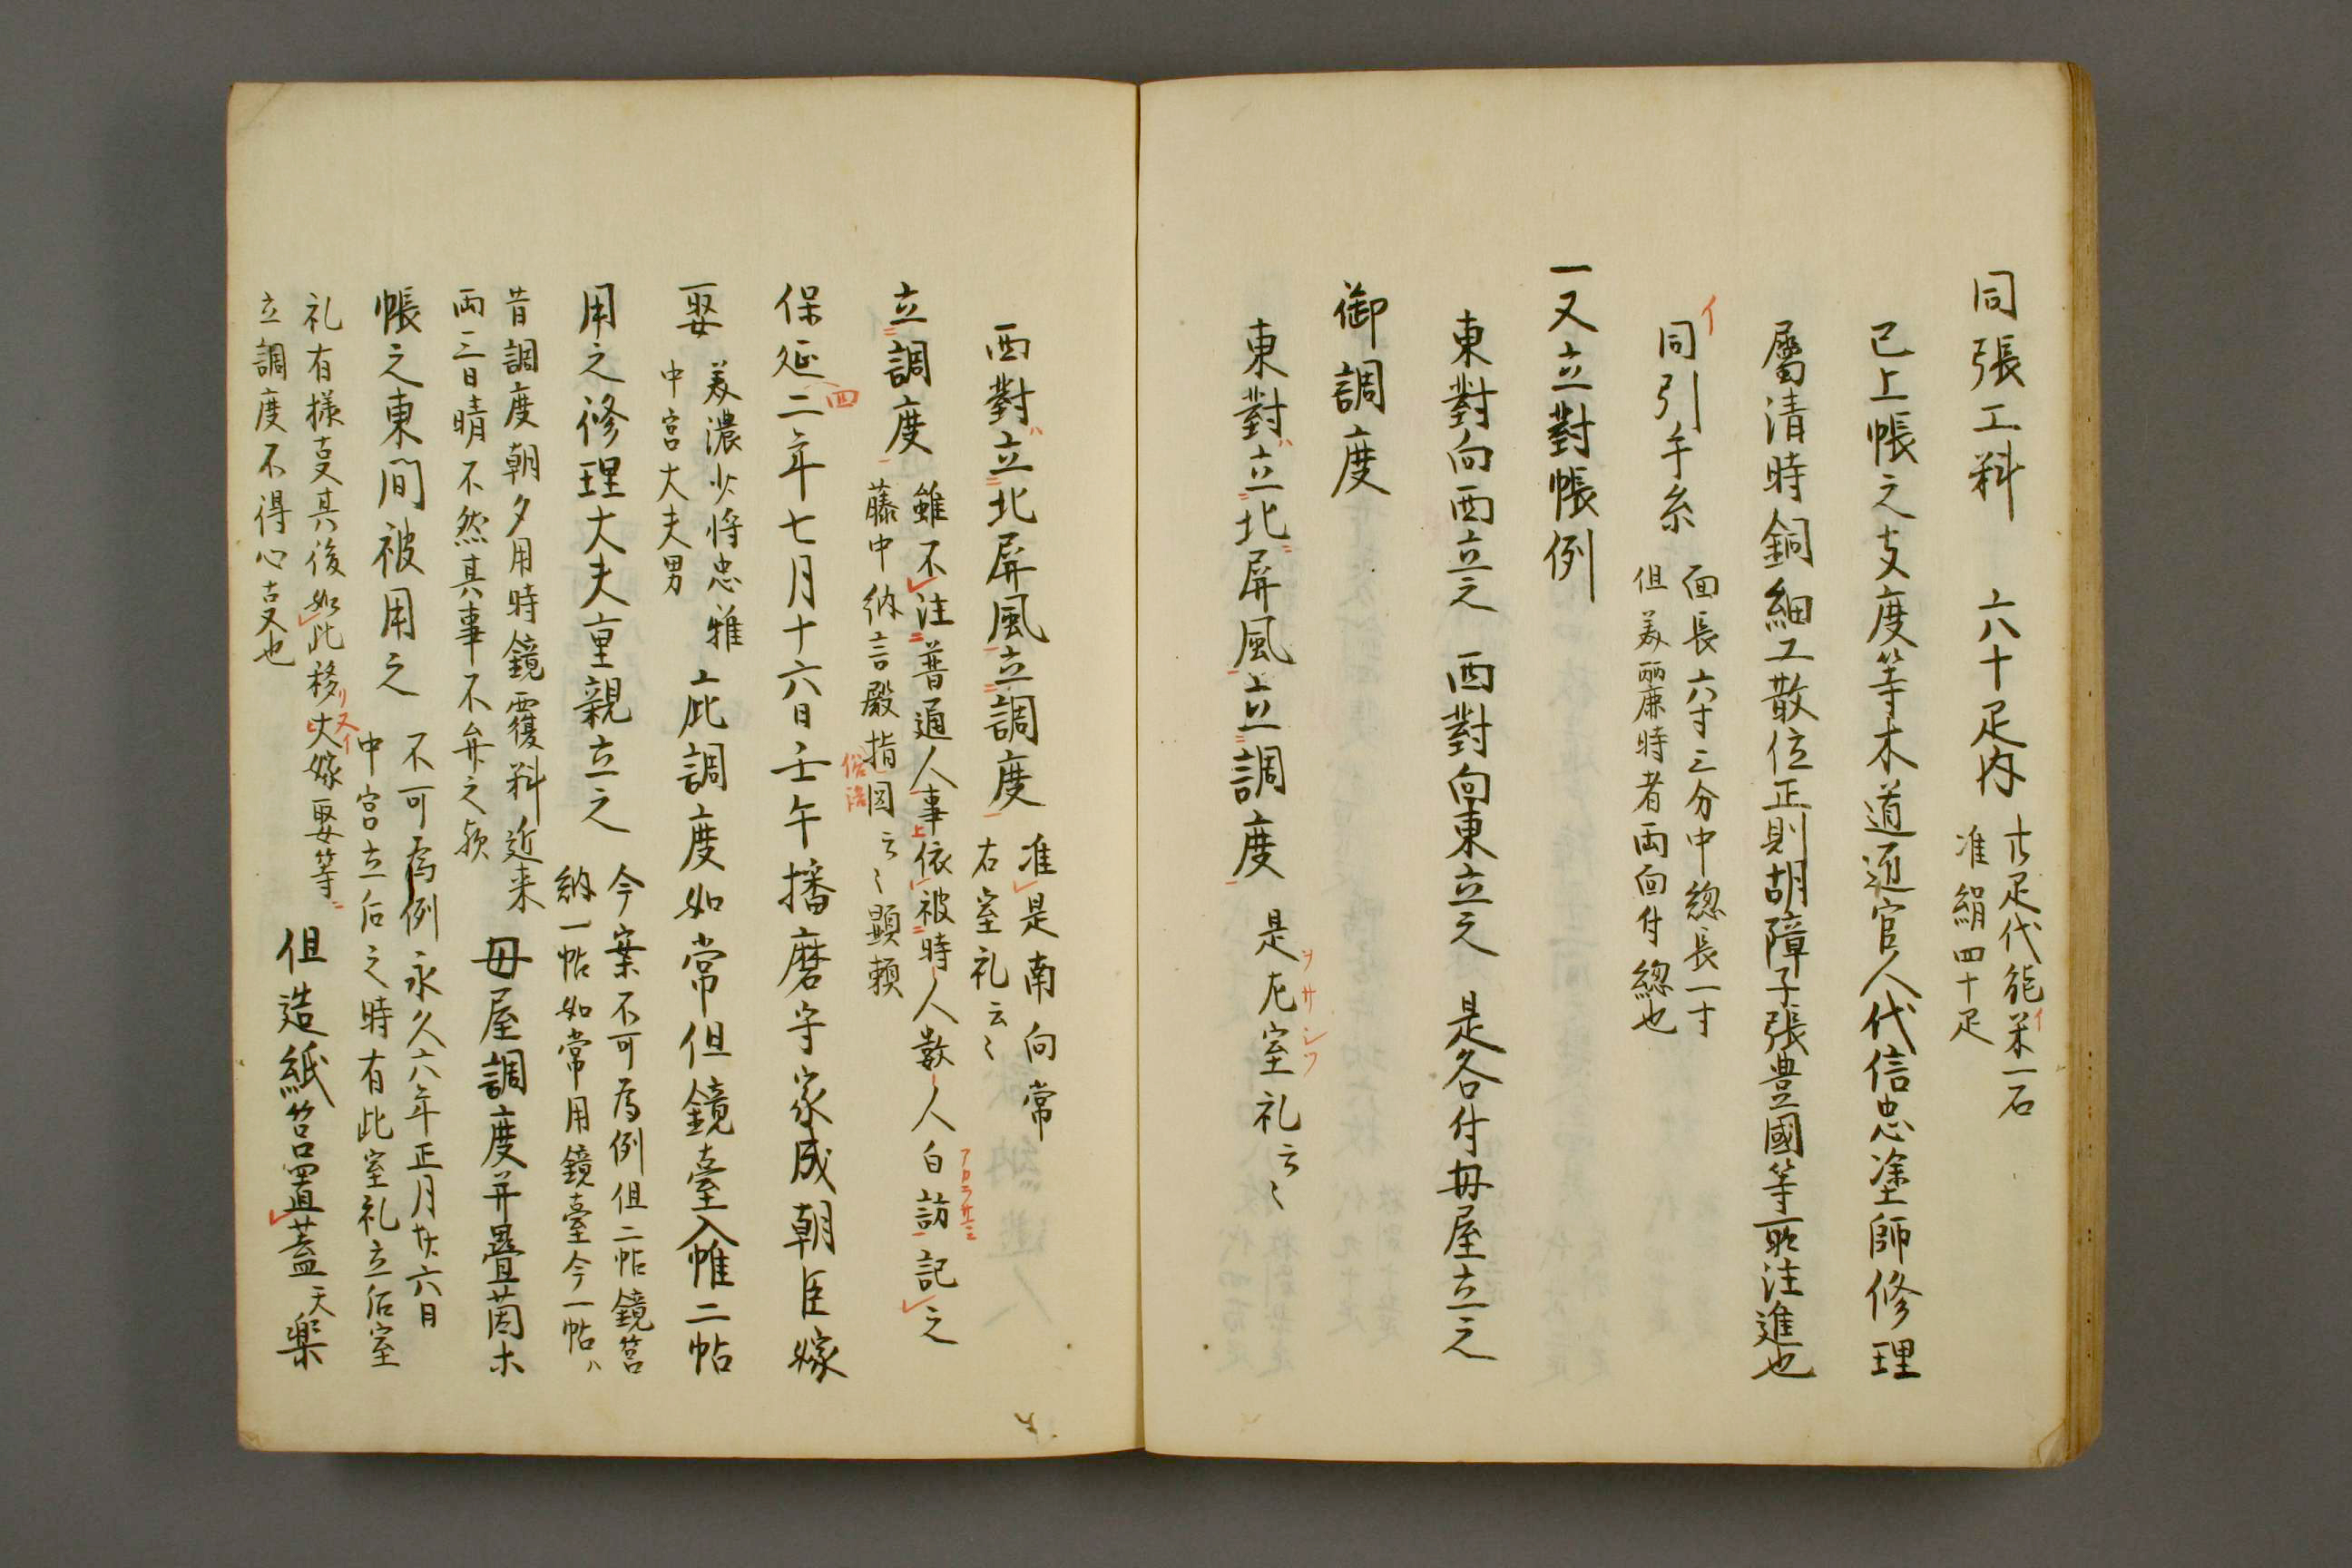 同張工料　六十疋内
廿疋代能米一石
准絹四十疋
已上帳之支度等木道通官人代信忠塗師修理
屬清時銅細工散位正則胡障子張豊國等所注進也
同引手糸
面長六寸三分中總長一寸
但美麗廉時者両面付總也
一又立對帳例
東對向西立之　西對向東立之　是各付母屋立之
御調度
東對立北屏風立調度　是左室礼云々
西對立北屏風立調度
准是南向常
右室礼云々
立調度
雖不注普通人事依被時人數人白訪記之
藤中納言殿指図云々顕頼
保延二年七月十六日壬午播磨守家成朝臣嫁
娶
美濃少将忠雅
中宮大夫男
此調度如常但鏡臺入帷二帖
用之修理大夫重親立之
今案不可為例但二帖鏡筥
納一帖如常用鏡臺今一帖ハ
昔調度朝夕用時鏡覆料近来
両三日晴不然其事不弁之歟
母屋調度并疊茵木
帳之東間被用之
不可為例永久六年正月廿六日
中宮立后之時有此室礼立后室
礼有様㕝其後如此移嫁娶等
立調度不得心㕝也
但造紙筥置蓋天樂